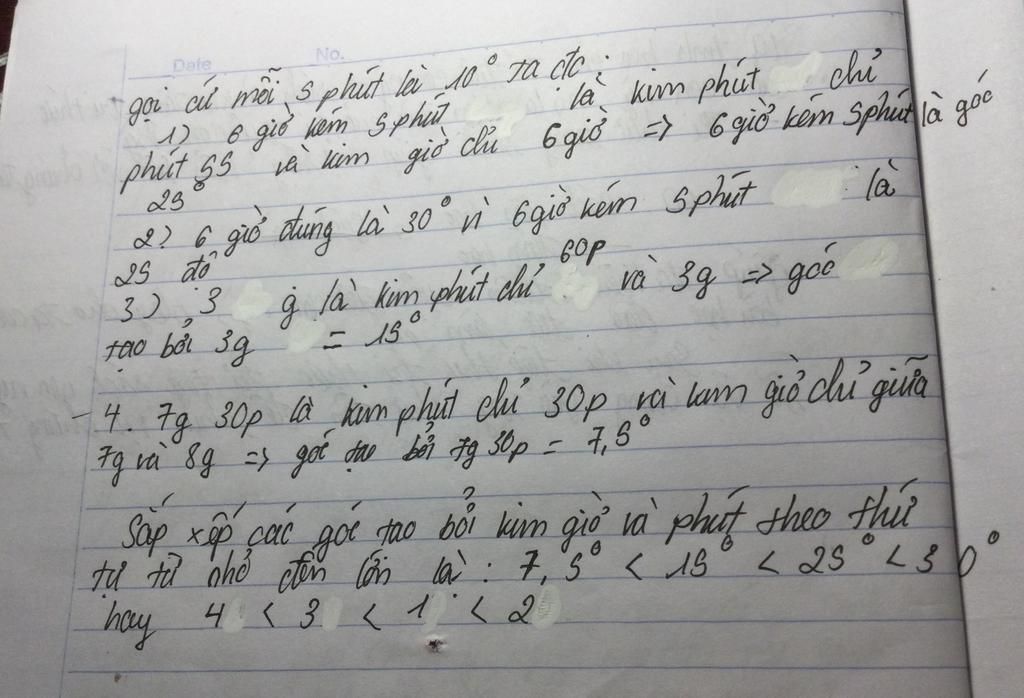 Date No.
gọi cứ mỗi 5 phút là 10° ta đc:
1) 6 giờ kém 5 phút là kim phút chỉ
phút 55 và kim giờ chỉ 6 giờ => 6 giờ kém 5 phút là góc
25°
2) 6 giờ đúng là 30° vì 6 giờ kém 5 phút là
25 độ
3) 3 g là kim phút chỉ 60p và 3g => góc
tạo bởi 3g = 15°
- 4. 7g 30p là kim phút chỉ 30p và kim giờ chỉ giữa
7g và 8g => góc tạo bởi 7g 30p = 7,5°
Sắp xếp các góc tạo bởi kim giờ và phút theo thứ
tự từ nhỏ đến lớn là: 7,5° < 15° < 25° < 30°
hay 4 < 3 < 1 < 2